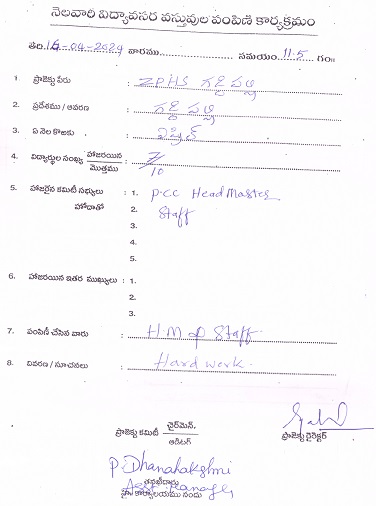 నెలవారి విద్యావసర వస్తువుల పంపిణి కార్యక్రమం
తేది. 16-04-2024 వారము సమయం 11-5 గం॥
1. ప్రాజెక్టు పేరు : ZPHS గట్టిపల్లి
2. ప్రదేశము / ఆవరణ : గట్టిపల్లి
3. ఏ నెల కొఱకు : ఏప్రిల్
4. విద్యార్థుల సంఖ్య హాజరయిన / మొత్తము : 7/10
5. హాజరైన కమిటీ సభ్యులు : 1. P.CC Head Master
హోదాతో 2. Staff
3.
4.
5.
6. హాజరయిన ఇతర ముఖ్యులు : 1.
2.
3.
7. పంపిణీ చేసిన వారు : H.M of Staff.
8. వివరణ / సూచనలు : Hard work.
ప్రాజెక్టు కమిటీ చైర్‌మెన్. / ఆడిటర్
ప్రాజెక్టు డైరెక్టర్
P. Dhanalakshmi
Asst Manager